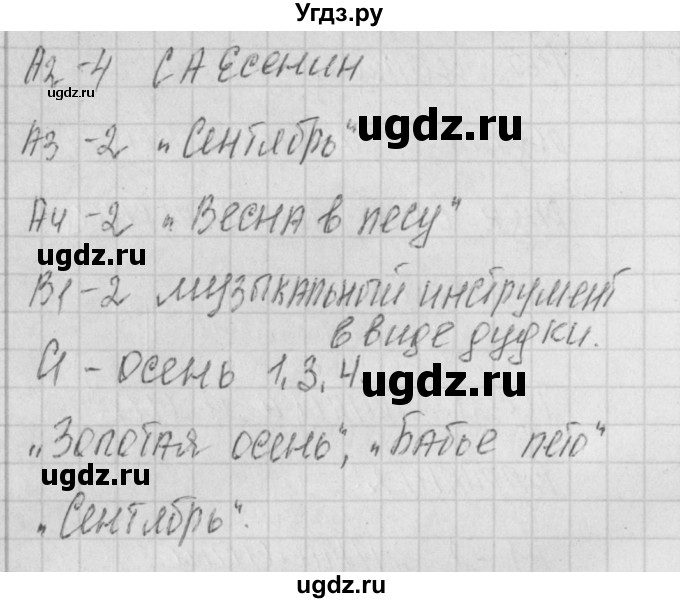 Угдз.ру
А2-4 С А Есенин
ugdz.ru
ugdz.ru
А3-2 „Сентябрь"
А4-2 „Весна в лесу"
ugdz.ru
В1-2 музыкальный инструмент
в виде дудки.
С1 - осень 1,3,4
ugdz.ru
„Золотая осень", „Бабье лето"
ugdz.ru
„Сентябрь".
ugdz.ru